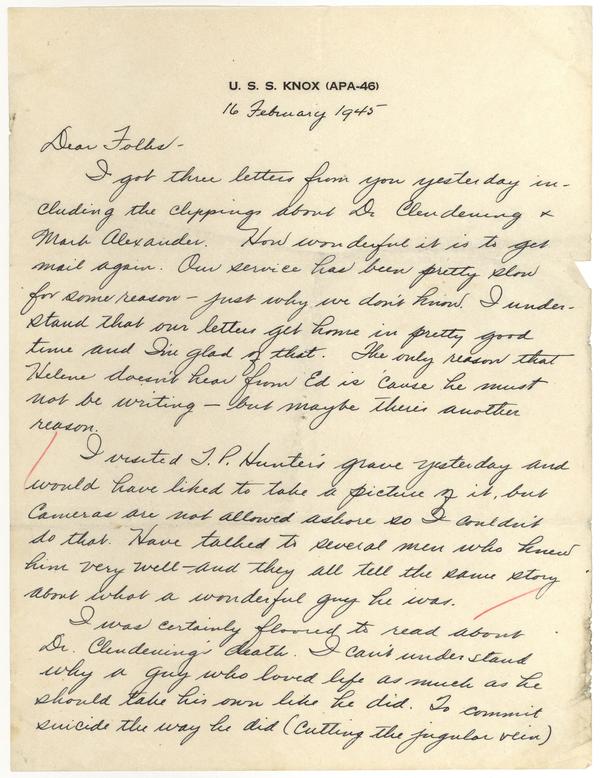 U. S. S. KNOX (APA-46)
16 February 1945
Dear Folks-
I got three letters from you yesterday in-
cluding the clippings about Dr Clendening &
Mark Alexander. How wonderful it is to get
mail again. Our service has been pretty slow
for some reason - just why we don't know. I under-
stand that our letters get home in pretty good
time and I'm glad of that. The only reason that
Helene doesn't hear from Ed is 'cause he must
not be writing - but maybe there's another
reason.
I visited T. P. Hunter's grave yesterday and
would have liked to take a picture of it, but
cameras are not allowed ashore so I couldn't
do that. Have talked to several men who knew
him very well - and they all tell the same story
about what a wonderful guy he was.
I was certainly floored to read about
Dr. Clendening's death. I can't understand
why a guy who loved life as much as he
should take his own like he did. To commit
suicide the way he did (cutting the jugular vein)